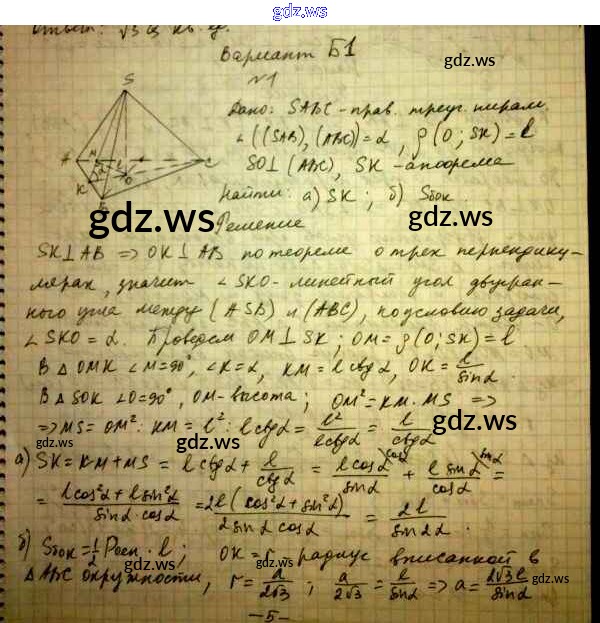 gdz.ws
Ответ: √3
gdz.ws
Вариант Б1
№1
gdz.ws
S
A
M
L
C
K
O
B
Дано: SABC - прав. треуг. пирам.
∠((SAB), (ABC)) = α, ρ(O; SK) = l
SO⊥(ABC), SK - апофема
Найти: а) SK; б) Sбок.
gdz.ws
gdz.ws
Решение
SK⊥AB ⇒ OK⊥AB по теореме о трех перпендику-
лярах, значит ∠SKO - линейный угол двугран-
ного угла между (ASB) и (ABC), по условию задачи,
∠SKO = α. Проведем OM⊥SK; OM = ρ(O; SK) = l.
В △OMK ∠M=90°, ∠K=α, KM = l ctgα, OK = l/sinα.
В △SOK ∠O=90°, OM - высота; OM² = KM·MS ⇒
⇒ MS = OM² : KM = l² : l ctgα = l²/l ctgα = l/ctgα
gdz.ws
gdz.ws
а) SK = KM + MS = l ctgα + l/ctgα = l cosα/sinα + l sinα/cosα =
= l cos²α + l sin²α/sinα·cosα = 2l(cos²α + sin²α)/2 sinα cosα = 2l/sin2α.
gdz.ws
б) Sбок = 1/2 Pосн · l; OK = r - радиус вписанной в
△ABC окружности, r = a/2√3; a/2√3 = l/sinα ⇒ a = 2√3l/sinα
gdz.ws
gdz.ws
- 5 -